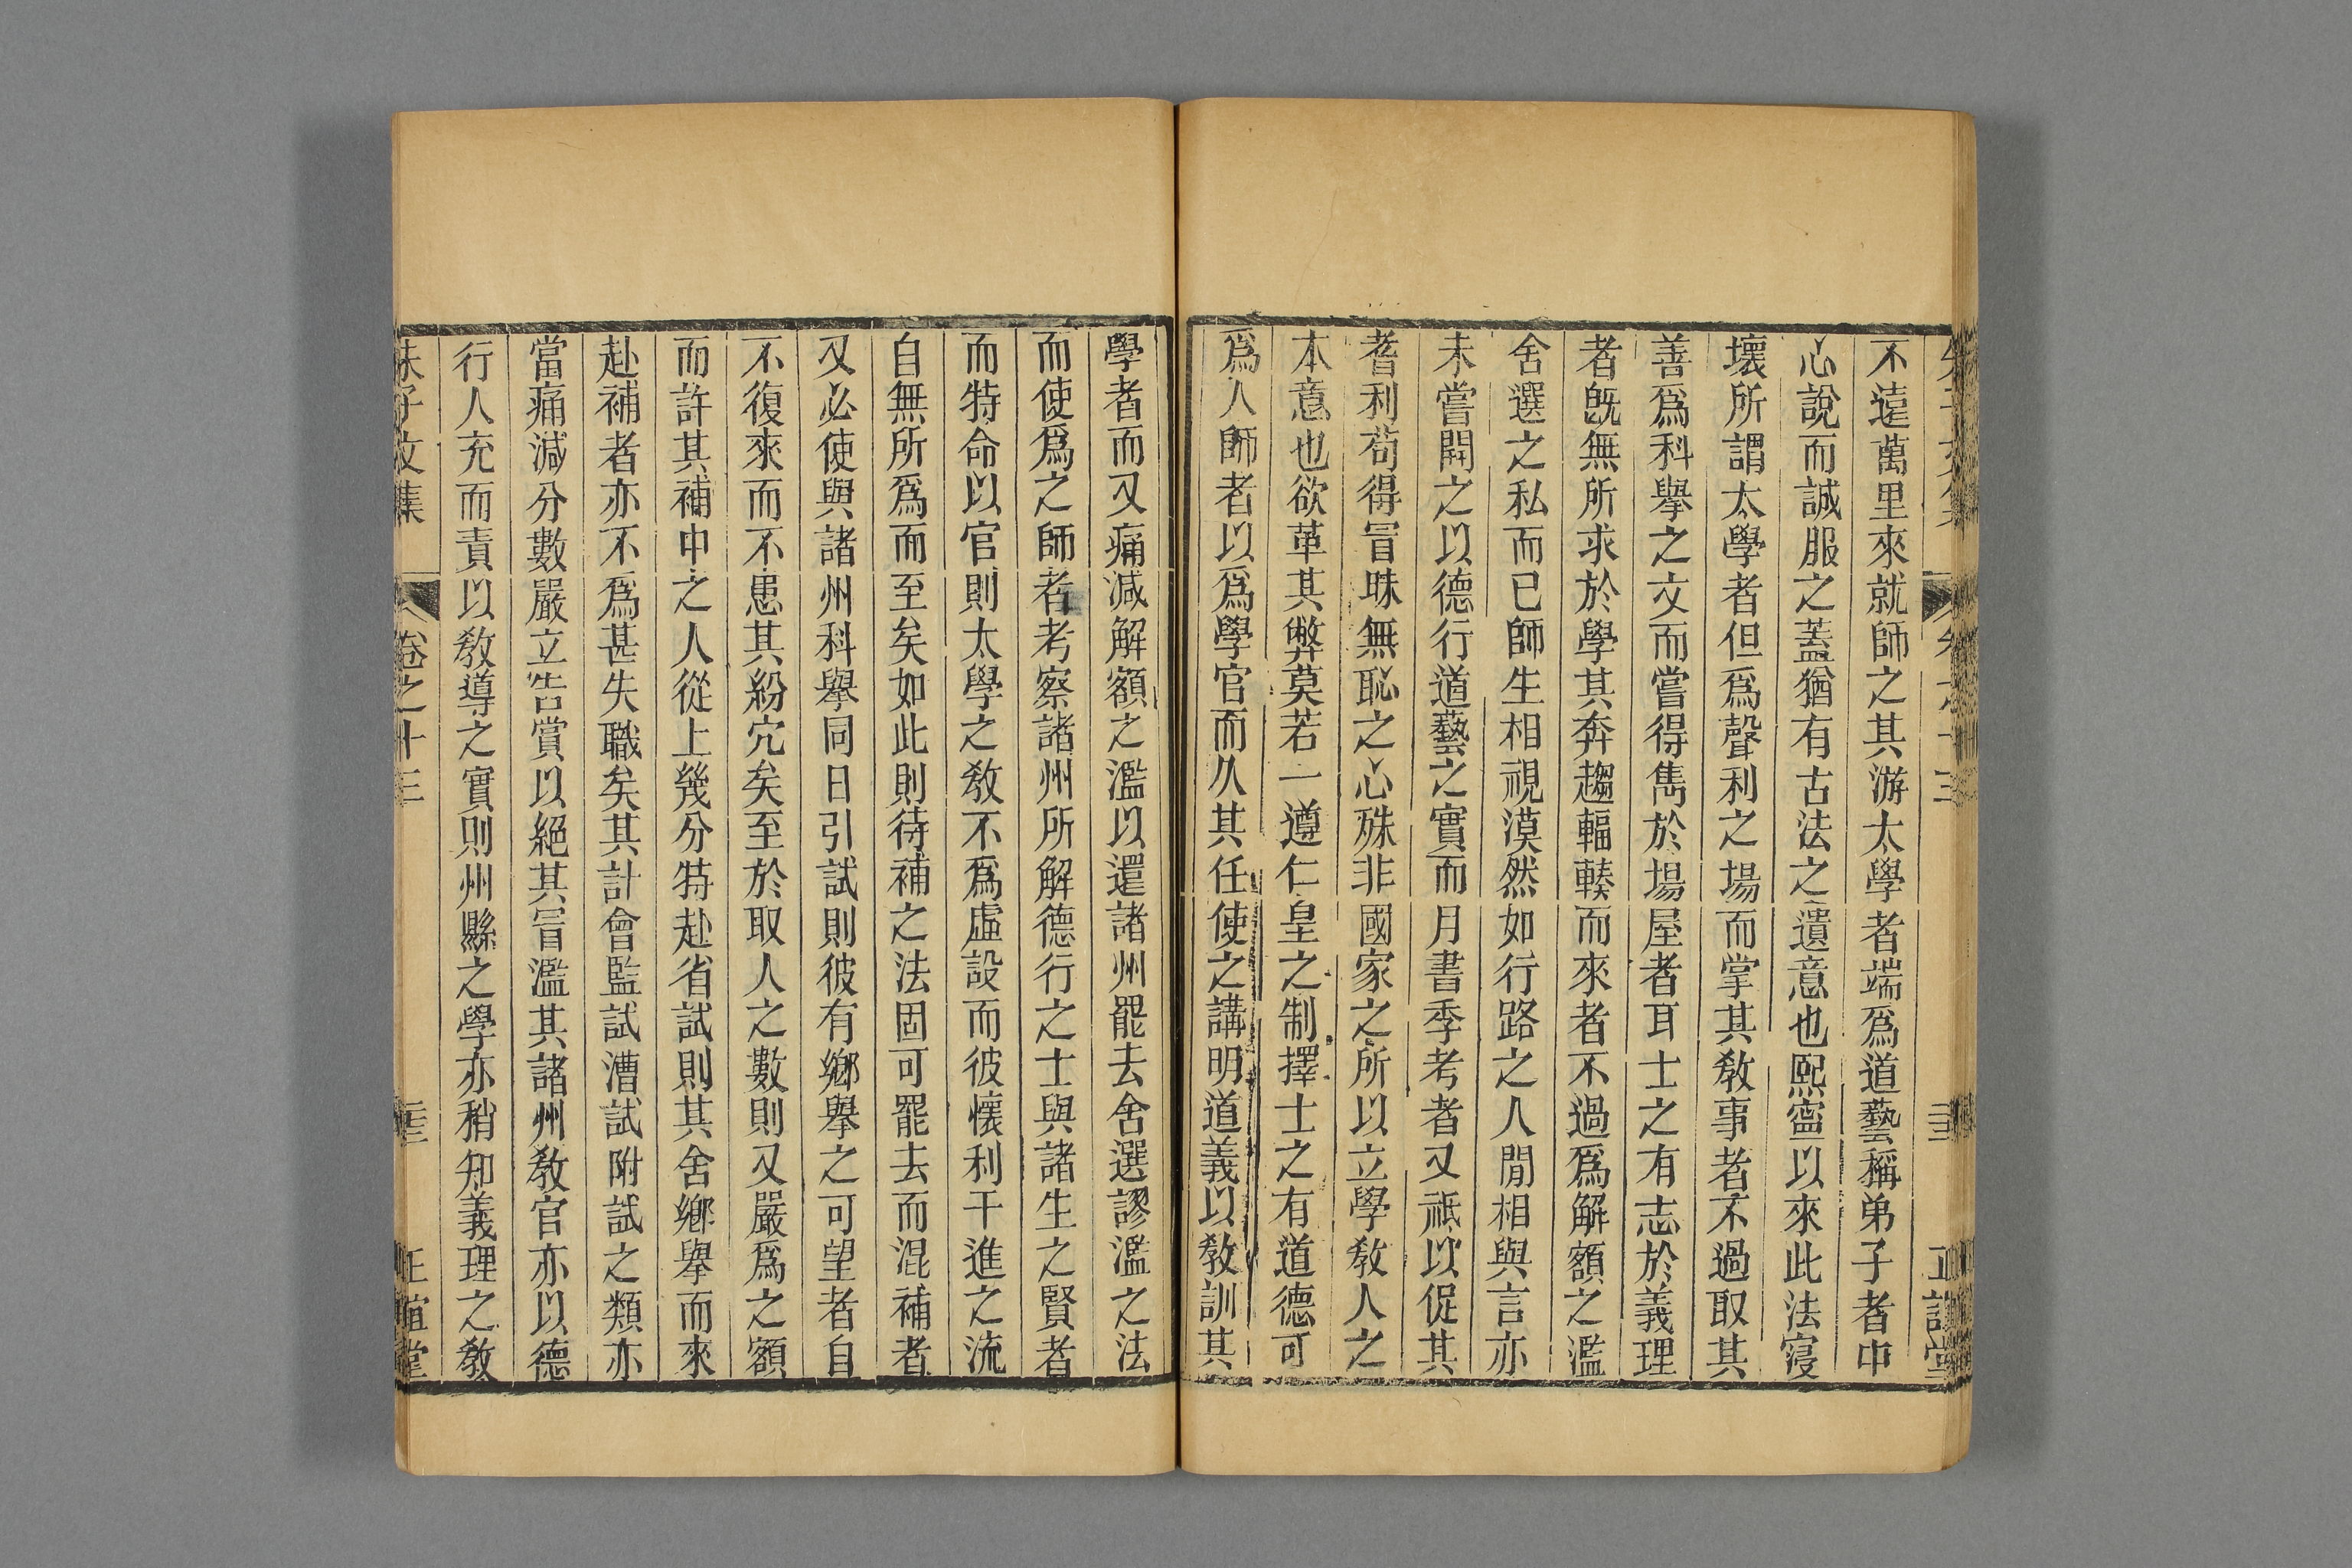 不遠萬里來就師之其游太學者端爲道藝稱弟子者中
心說而誠服之蓋猶有古法之遺意也熙寧以來此法寖
壞所謂太學者但爲聲利之場而掌其敎事者不過取其
善爲科舉之文而嘗得雋於場屋者耳士之有志於義理
者旣無所求於學其奔趨輻輳而來者不過爲解額之濫
舍選之私而已師生相視漠然如行路之人閒相與言亦
未嘗開之以德行道藝之實而月書季考者又祗以促其
耆利苟得冒昧無恥之心殊非國家之所以立學敎人之
本意也欲革其弊莫若一遵仁皇之制擇士之有道德可
爲人師者以爲學官而久其任使之講明道義以敎訓其
學者而又痛減解額之濫以還諸州罷去舍選謬濫之法
而使爲之師者考察諸州所解德行之士與諸生之賢者
而特命以官則太學之敎不爲虛設而彼懷利干進之流
自無所爲而至矣如此則待補之法固可罷去而混補者
又必使與諸州科舉同日引試則彼有鄉舉之可望者自
不復來而不患其紛冗矣至於取人之數則又嚴爲之額
而許其補中之人從上幾分特赴省試則其舍鄉舉而來
赴補者亦不爲甚失職矣其計會監試漕試附試之類亦
當痛減分數嚴立告賞以絕其冒濫其諸州敎官亦以德
行人充而責以敎導之實則州縣之學亦稍知義理之敎
朱子文集 卷之十三 正誼堂